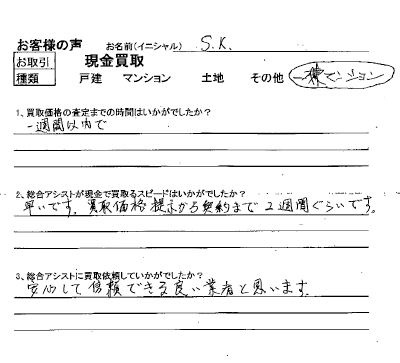 お客様の声 お名前(イニシャル) S.K.
お取引 現金買取
種類 戸建 マンション 土地 その他 一棟マンション
1、買取価格の査定までの時間はいかがでしたか?
一週間以内で
2、総合アシストが現金で買取るスピードはいかがでしたか?
早いです。買取価格提示から契約まで2週間ぐらいです。
3、総合アシストに買取依頼していかがでしたか?
安心して信頼できる良い業者と思います。